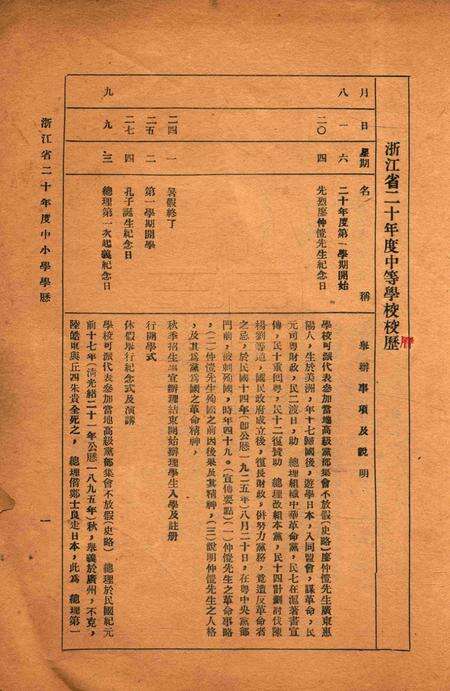 浙江省二十年度中等學校校歷
曆
月 日 星期 名 稱 舉辦事項及說明
八 一 六 二十年度第一學期開始
二〇 四 先烈廖仲愷先生紀念日
學校可派代表參加當地高級黨部集會不放假(史略)廖仲愷先生廣東惠
陽人,生於美洲,年十七歸國後,遊學日本,入同盟會,謀革命,民
元司粵財政,民二渡日,助 總理組織中華革命黨,民七在滬著書宣
傳,民十重回粵,民十二復贊助 總理改組本黨,民十四計劃討伐陳
楊劉等逆,國民政府成立後,復長財政,併努力黨務,竟遭反革命者
之忌,於民國十四年(即公曆一九二五年)八月二十日,在粵中央黨部
門前,被刺殉國,時年四十九。(宣傳要點)(一)仲愷先生之革命事略
,(二)仲愷先生殉國之前因後果及其精神,(三)說明仲愷先生之人格
,及其為黨為國之革命精神,
二四 一 暑假終了
秋季招生事宜辦理結束開始辦理學生入學及註冊
二五 二 第一學期開學
行開學式
二七 四 孔子誕生紀念日
休假舉行紀念式及演講
九 九 三 總理第一次起義紀念日
學校可派代表參加當地高級黨部集會不放假(史略) 總理於民國紀元
前十七年(清光緒二十一年公曆一八九五年)秋,舉義於廣州,不克,
陸皓東與丘四朱貴全死之, 總理偕鄭士良走日本,此為 總理第一
浙江省二十年度中小學學歷
一